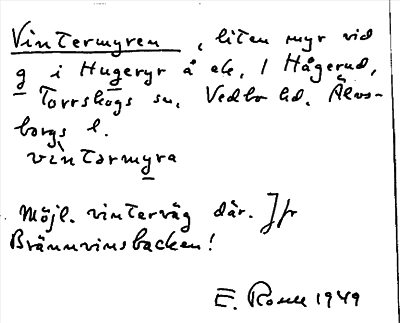 Vintermyren, liten myr vid
g i Hugeryr å ek. 1 Hågerud,
Torrskogs sn. Vedbo hd. Älvs-
borgs l.
vìntərmyra
Möjl. vinterväg där. Jfr
Brännvinsbacken!
E. 1949